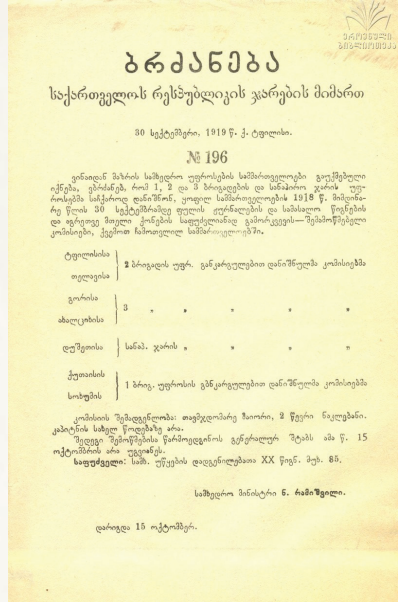 ეროვნული
ბიბლიოთეკა
ბრძანება
საქართველოს რესპუბლიკის ჯარების მიმართ
30 სექტემბერი, 1919 წ. ქ. ტფილისი.
№ 196
ვინაიდან მაზრის სამხედრო უფროსების სამმართველოები გაუქმებული
იქნება, ვბრძანებ, რომ 1, 2 და 3 ბრიგადების და სანაპირო ჯარის უფ-
როსებმა საჩქაროდ დანიშნონ, ყოფილ სამმართველოების 1918 წ. მიმდინა-
რე წლის 30 სექტემბრამდე ფულის ჟურნალების და სამასალო წიგნების
და აგრეთვე მთელი ქონების საფუძვლიანად გამორკვევის—შემამოწმებელი
კომისიები, ქვემოთ ჩამოთვლილ სამმართველოებში.
ტფილისისა
თელავისა
2 ბრიგადის უფრ. განკარგულებით დანიშნულმა კომისიებმა
გორისა
ახალციხისა
3 „ „ „ „ „
დუშეთისა
სანაპ. ჯარის „ „ „ „
ქუთაისის
სოხუმის
1 ბრიგ. უფროსის განკარგულებით დანიშნულმა კომისიებმა
კომისიის შემადგენლობა: თავმჯდომარე მაიორი, 2 წევრი ნაკლებანი.
კაპიტნის სახელ წოდებაზე არა.
შედეგი შემოწმებისა წარმოედგინოს გენერალურ შტაბს ამა წ. 15
ოქტომბრის არა უგვიანეს.
საფუძველი: სამხ. უწყების დადგენილებათა XX წიგნ. მუხ. 85.
სამხედრო მინისტრი ნ. რამიშვილი.
დარიგდა 15 ოქტომბერ.